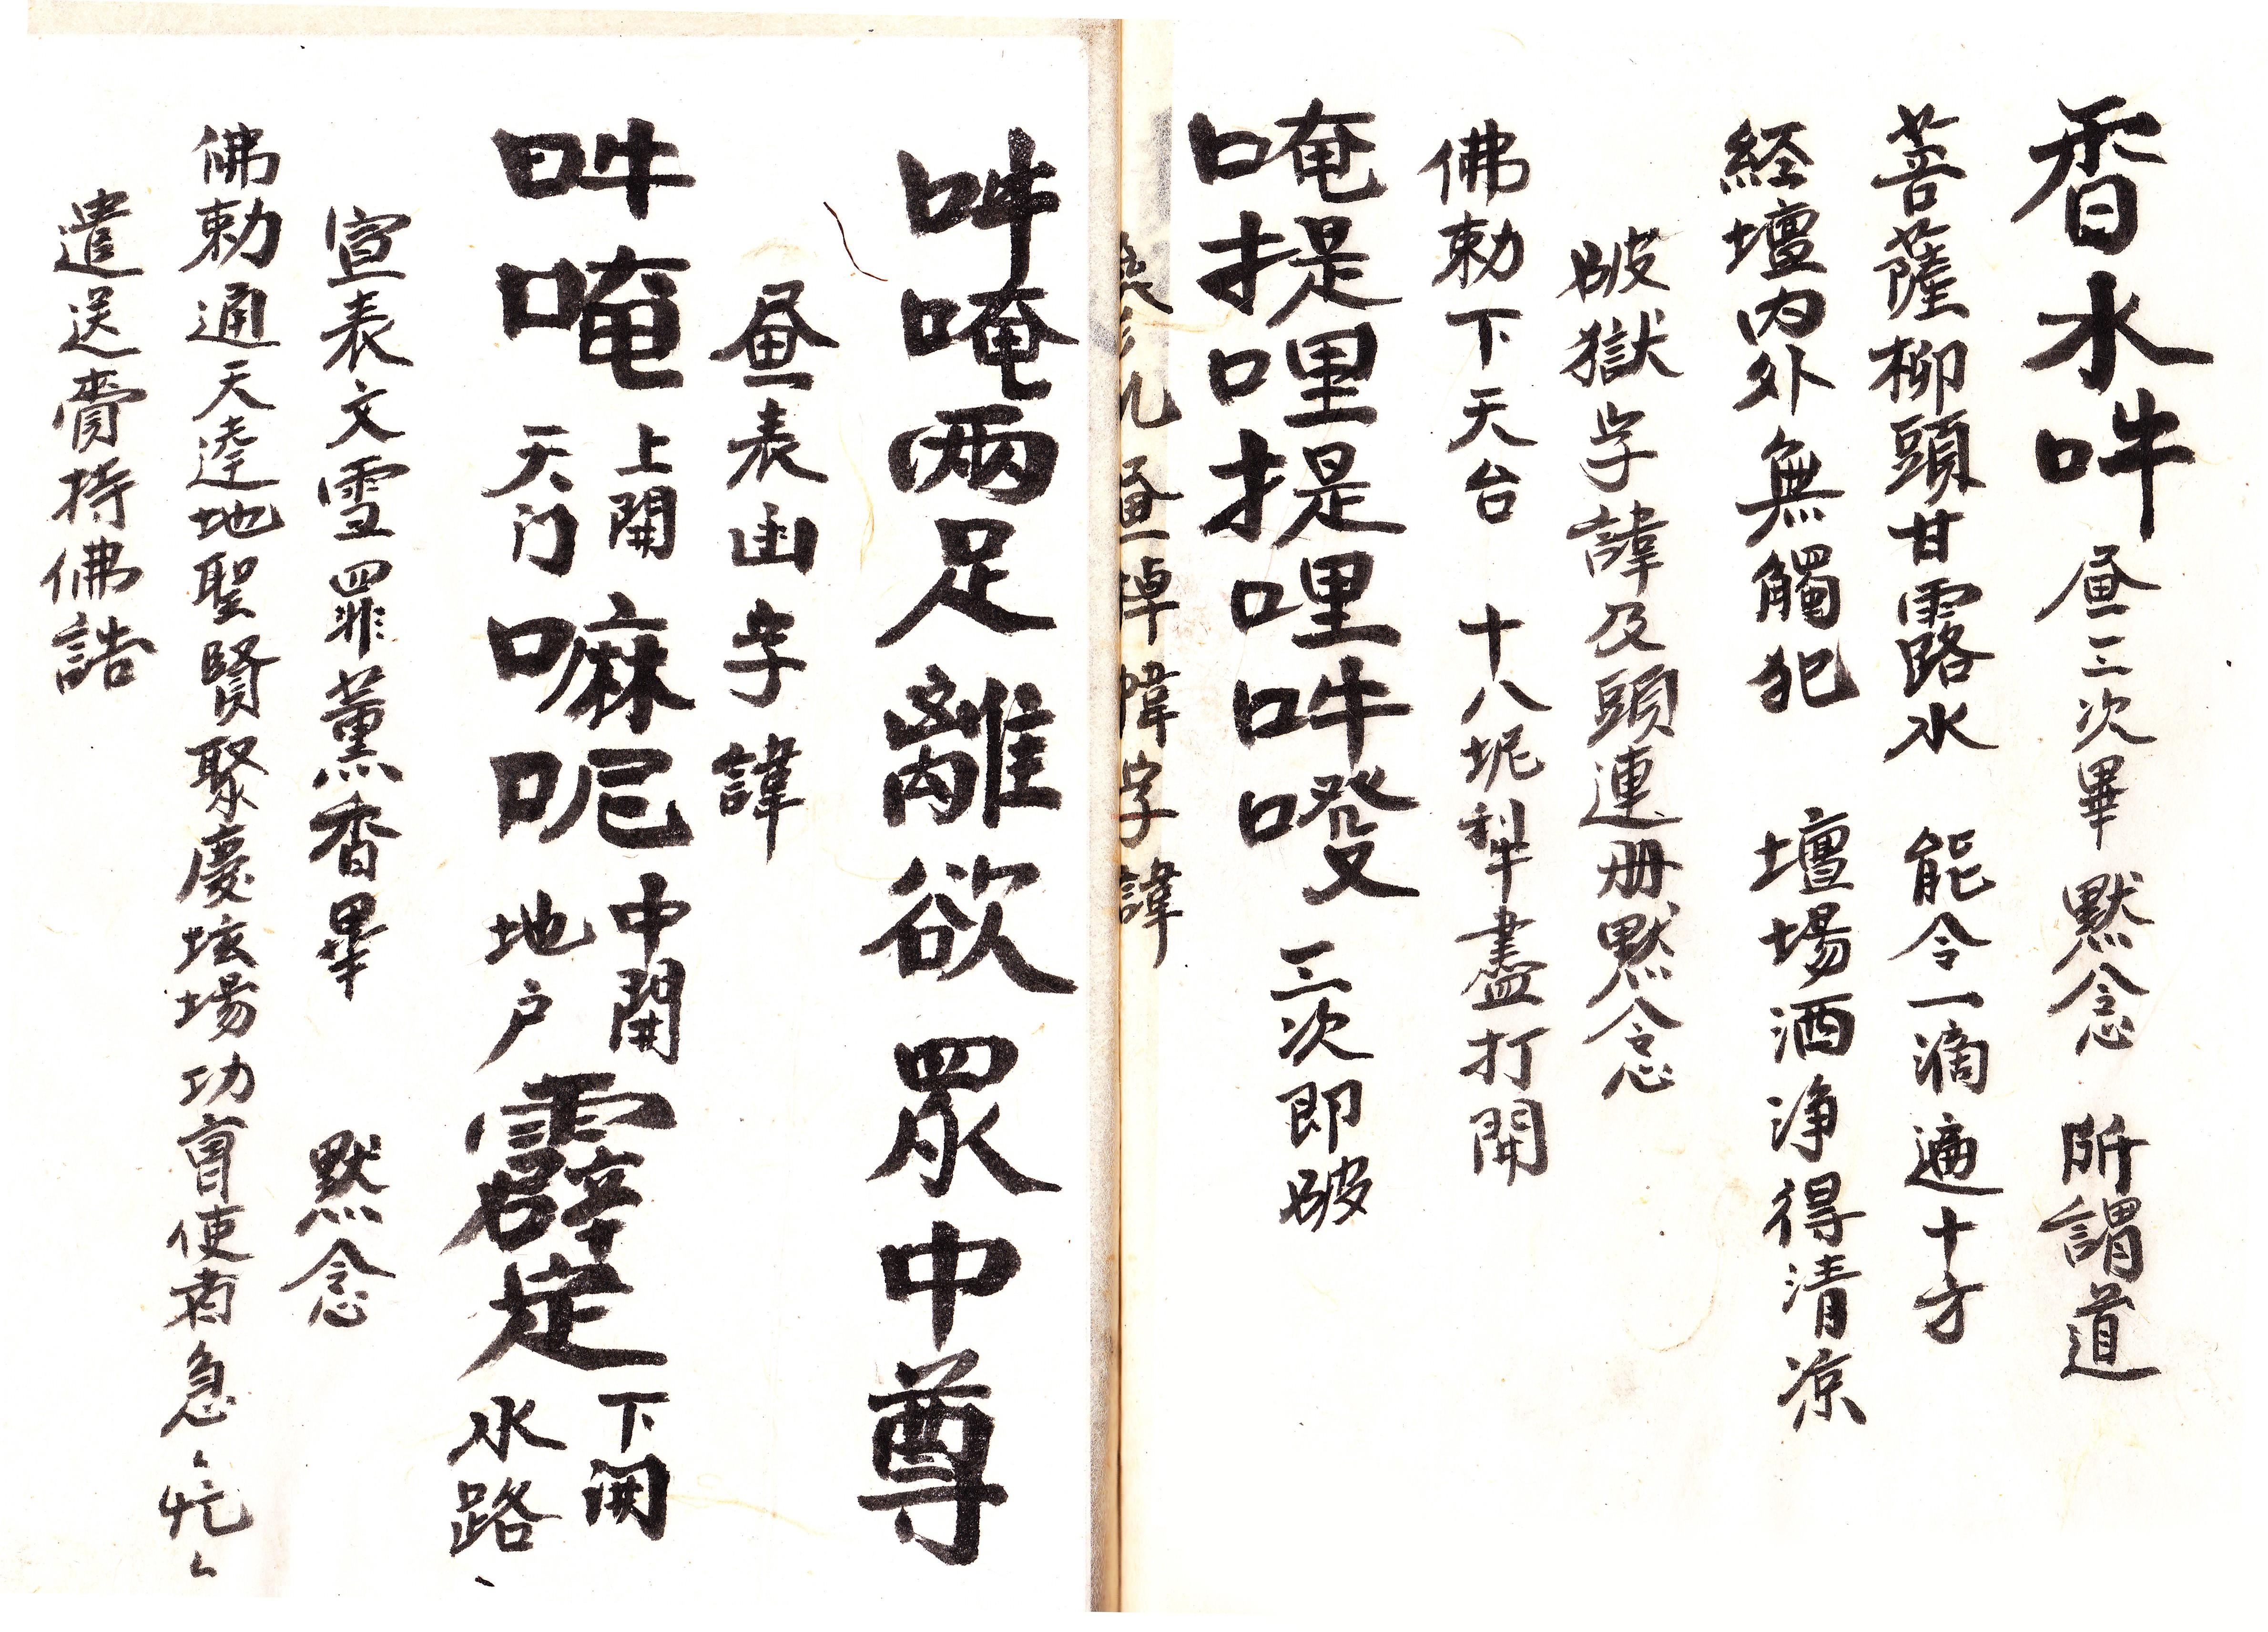 香水吽 畫三次畢 默念 所謂道
菩薩柳頭甘露水 能令一滴遍十方
経壇内外無觸犯 壇場洒净得清凉
破獄字諱及頭連册默念
佛勅下天台 十八坭犁盡打開
唵提哩提哩吽 三次即破
畫 諱字諱
吽唵兩足離欲眾中尊
畫表函字諱
吽唵 上開天门 嘛呢 中開地户 霹定 下開水路
宣表文雪罪薰香畢 默念
佛勅通天達地聖賢聚慶坛場功曹使者急〻忙〻
遣送賫持佛誥